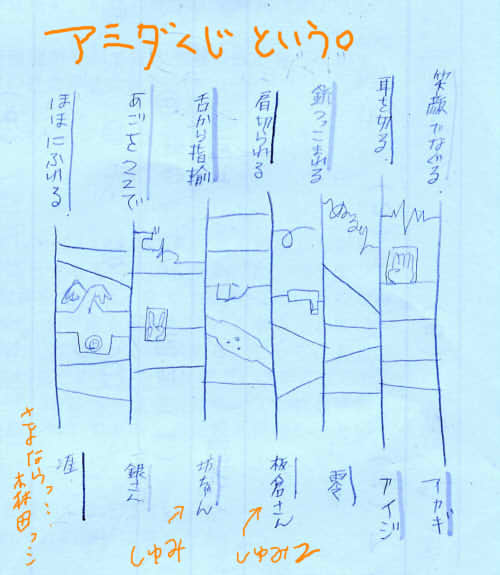 アミダくじという。
笑顔でなぐる。
耳を切る。
銃つっこまれる
肩切られる
舌から指輪
あごを22で
ほほにふれる。
ざわ
ぬるりん
アカギ
アイジ
零
板倉さん
坊ちゃん
銀さん
しゅみ
しゅみ2
さよならっ…森田っ…